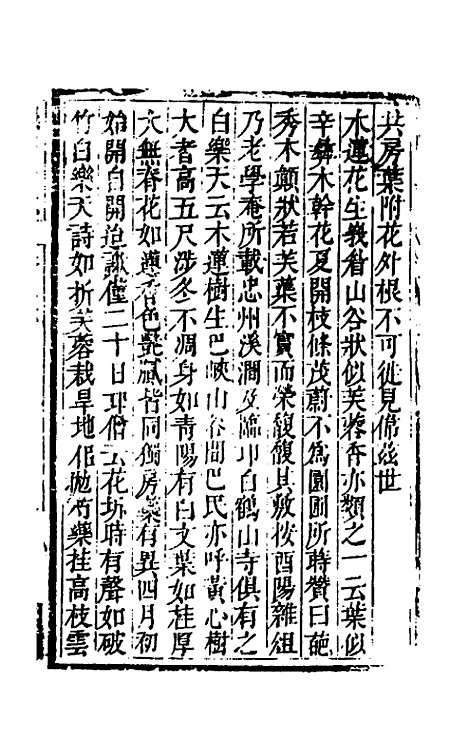 共房葉附花外根不可徙見偁茲世
木蓮花生峩眉山谷狀似芙蓉香亦類之一云葉似
辛夷木幹花夏開枝條茂蔚不爲園圃所蒔贊曰葩
秀木顛狀若芙蕖不實而榮馥馥其敷按酉陽雜組
乃老學庵所載忠州溪澗及臨卭白鶴山寺俱有之
白樂天云木蓮樹生巴峽山谷間巴民亦呼黃心樹
大者高五尺涉冬不凋身如青陽有白文葉如桂厚
大無脊花如蓮香色艶膩皆同獨房蘂有異四月初
始開自開迨謝僅二十日卭僧云花坼時有聲如破
竹白樂天詩如折芙蓉栽旱地似拋芍藥挂高枝雲